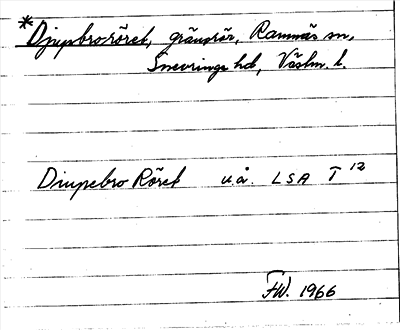 *Djupbroröret, gränsrör, Ramnäs sn,
Snevringe hd, Västm. l.
Diupebro Röret u.å. LSA T 12
FW. 1966